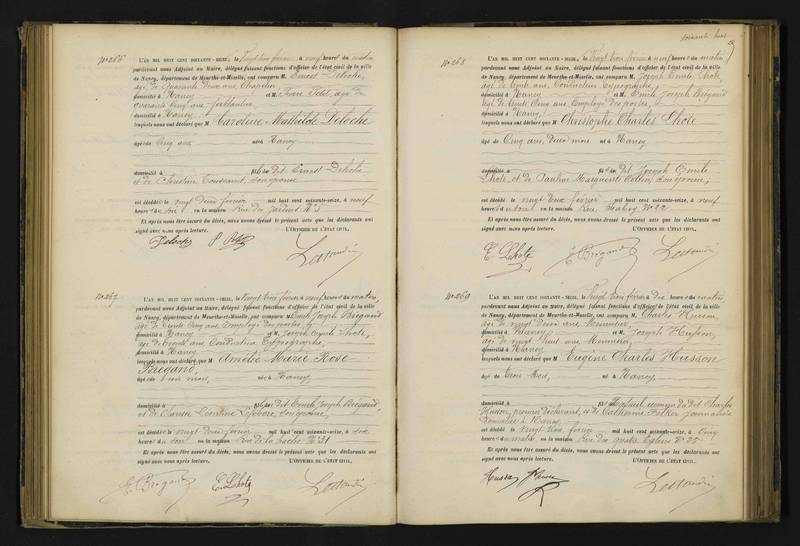 No 266
L'AN MIL HUIT CENT SOIXANTE-SEIZE, le Vingt trois février à neuf heures du matin
pardevant nous Adjoint au Maire, délégué faisant fonctions d'officier de l'état civil de la ville
de Nancy, département de Meurthe-et-Moselle, ont comparu M. Ernest Deloche,
âgé de quarante deux ans, Chapelier
domicilié à Nancy et M. Petit, âgé de
quarante cinq ans
domicilié à Nancy
lesquels nous ont déclaré que M Caroline Mathilde Deloche
âgé de cinq ans né à Nancy
domicilié à fils dit Ernest Deloche
et de Christine son épouse
est décédé le vingt deux février mil huit cent soixante-seize, à neuf
heures du soir en la maison Rue des Jardins No 3
Et après nous être assuré du décès, nous avons dressé le présent acte que les déclarants ont
signé avec nous après lecture. L'OFFICIER DE L'ÉTAT CIVIL,
No 267
L'AN MIL HUIT CENT SOIXANTE-SEIZE, le Vingt trois février à neuf heures du matin,
pardevant nous Adjoint au Maire, délégué faisant fonctions d'officier de l'état civil de la ville
de Nancy, département de Meurthe-et-Moselle, ont comparu M. Emile Joseph Brégand
âgé de trente cinq ans, Employé des postes,
domicilié à Nancy et M. Joseph Emile Lhote,
âgé de trente ans, Conducteur Typographe,
domicilié à Nancy
lesquels nous ont déclaré que M Amélie Marie Rose
Brégand,
âgé de mois, né à Nancy
domicilié à fils dit Emile Joseph Brégand,
et de son épouse,
est décédé le vingt deux février mil huit cent soixante-seize, à
heures du soir en la maison Rue de la hache No 31
Et après nous être assuré du décès, nous avons dressé le présent acte que les déclarants ont
signé avec nous après lecture. L'OFFICIER DE L'ÉTAT CIVIL,
E. Brégand E. Lhote
No 268
L'AN MIL HUIT CENT SOIXANTE-SEIZE, le Vingt trois février à neuf heures du matin
pardevant nous Adjoint au Maire, délégué faisant fonctions d'officier de l'état civil de la ville
de Nancy, département de Meurthe-et-Moselle, ont comparu M. Joseph Emile Lhote,
âgé de trente ans, Conducteur typographe,
domicilié à Nancy et M. Emile Joseph Brégand
âgé de trente cinq ans, Employé des postes,
domicilié à Nancy
lesquels nous ont déclaré que M Christophe Charles Lhote
âgé de Cinq ans, deux mois né à Nancy
domicilié à fils dit Joseph Emile
Lhote, et de Pauline Marguerite son épouse,
est décédé le vingt trois février mil huit cent soixante-seize, à
heures du en la maison Rue No 22
Et après nous être assuré du décès, nous avons dressé le présent acte que les déclarants ont
signé avec nous après lecture. L'OFFICIER DE L'ÉTAT CIVIL,
E. Lhote E. Brégand
No 269
L'AN MIL HUIT CENT SOIXANTE-SEIZE, le Vingt trois février à dix heures du matin,
pardevant nous Adjoint au Maire, délégué faisant fonctions d'officier de l'état civil de la ville
de Nancy, département de Meurthe-et-Moselle, ont comparu M. Charles Husson,
âgé de vingt deux ans, Menuisier,
domicilié à Nancy et M. Joseph Husson,
âgé de vingt huit ans, Menuisier,
domicilié à Nancy
lesquels nous ont déclaré que M Eugène Charles Husson
âgé de trois mois, né à Nancy,
domicilié à fils naturel reconnu du dit Charles
Husson, premier déclarant, et de Catherine journalière
domiciliée à Nancy
est décédé le vingt trois février mil huit cent soixante-seize, à cinq
heures du matin en la maison Rue des quatre Eglises No 35
Et après nous être assuré du décès, nous avons dressé le présent acte que les déclarants ont
signé avec nous après lecture. L'OFFICIER DE L'ÉTAT CIVIL,
Husson Husson